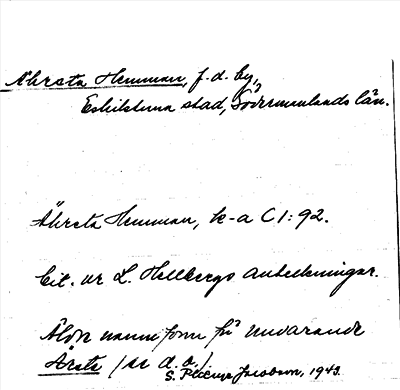 Åhrsta Hemman, f.d. by,
Eskilstuna stad, Södermanlands län.
Åhrsta Hemman, k-a C1:92.
Cit. ur L. Hellbergs anteckningar.
Äldre namnform för nuvarande
Årsta (se d.o.)
S. Jacobson, 1943.